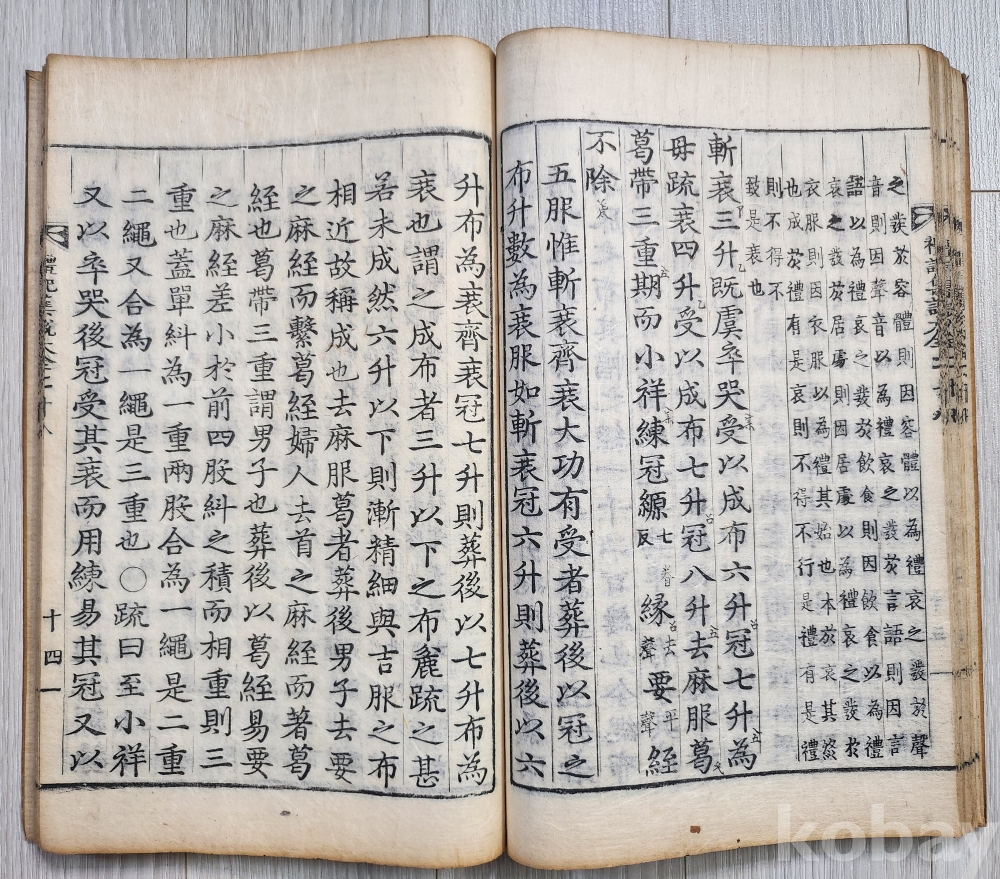 之發於容體則因容體以為禮哀之發於聲
音則因聲音以為禮哀之發於言語則因言
語以為禮哀之發於飲食則因飲食以為禮
哀之發於居處則因居處以為禮哀之發於
衣服則因衣服以為禮其始也本於哀其終
也成於禮有是哀則不得不行是禮有是禮
則不得不
致是哀也
斬衰三升既虞卒哭受以成布六升冠七升為
母疏衰四升受以成布七升冠八升去麻服葛
葛帶三重期而小祥練冠縓七眷反緣去聲要平聲絰
不除
五服惟斬衰齊衰大功有受者葬後以冠之
布升數為衰服如斬衰冠六升則葬後以六
升布為衰齊衰冠七升則葬後以七升布為
衰也謂之成布者三升以下之布麄疏之甚
若未成然六升以下則漸精細與吉服之布
相近故稱成也去麻服葛者葬後男子去要
之麻絰而繫葛絰婦人去首之麻絰而著葛
絰也葛帶三重謂男子也葬後以葛絰易要
之麻絰差小於前四股糾之積而相重則三
重也蓋單糾為一重兩股合為一繩是二重
二繩又合為一繩是三重也○疏曰至小祥
又以卒哭後冠受其衰而用練易其冠又以
禮記集說大全二十八
十四
kobay